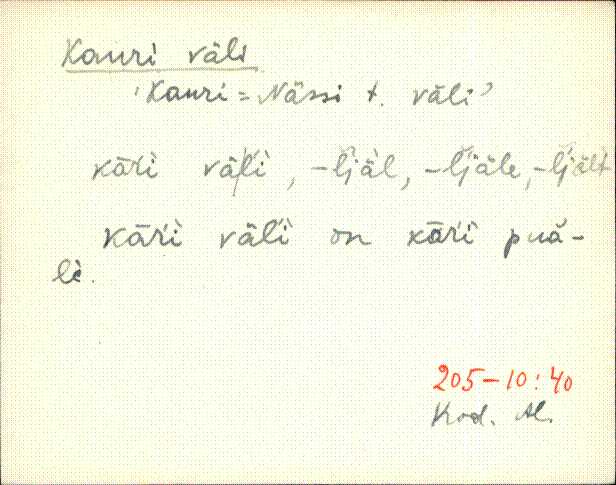 Kauri väli
'Kauri = Nässi t. väli'
kāri väĺi, -ljäl, -ljäle, -ljält
kāri väĺi on kāri puä-
li.
205-10:40
Kod. Al.